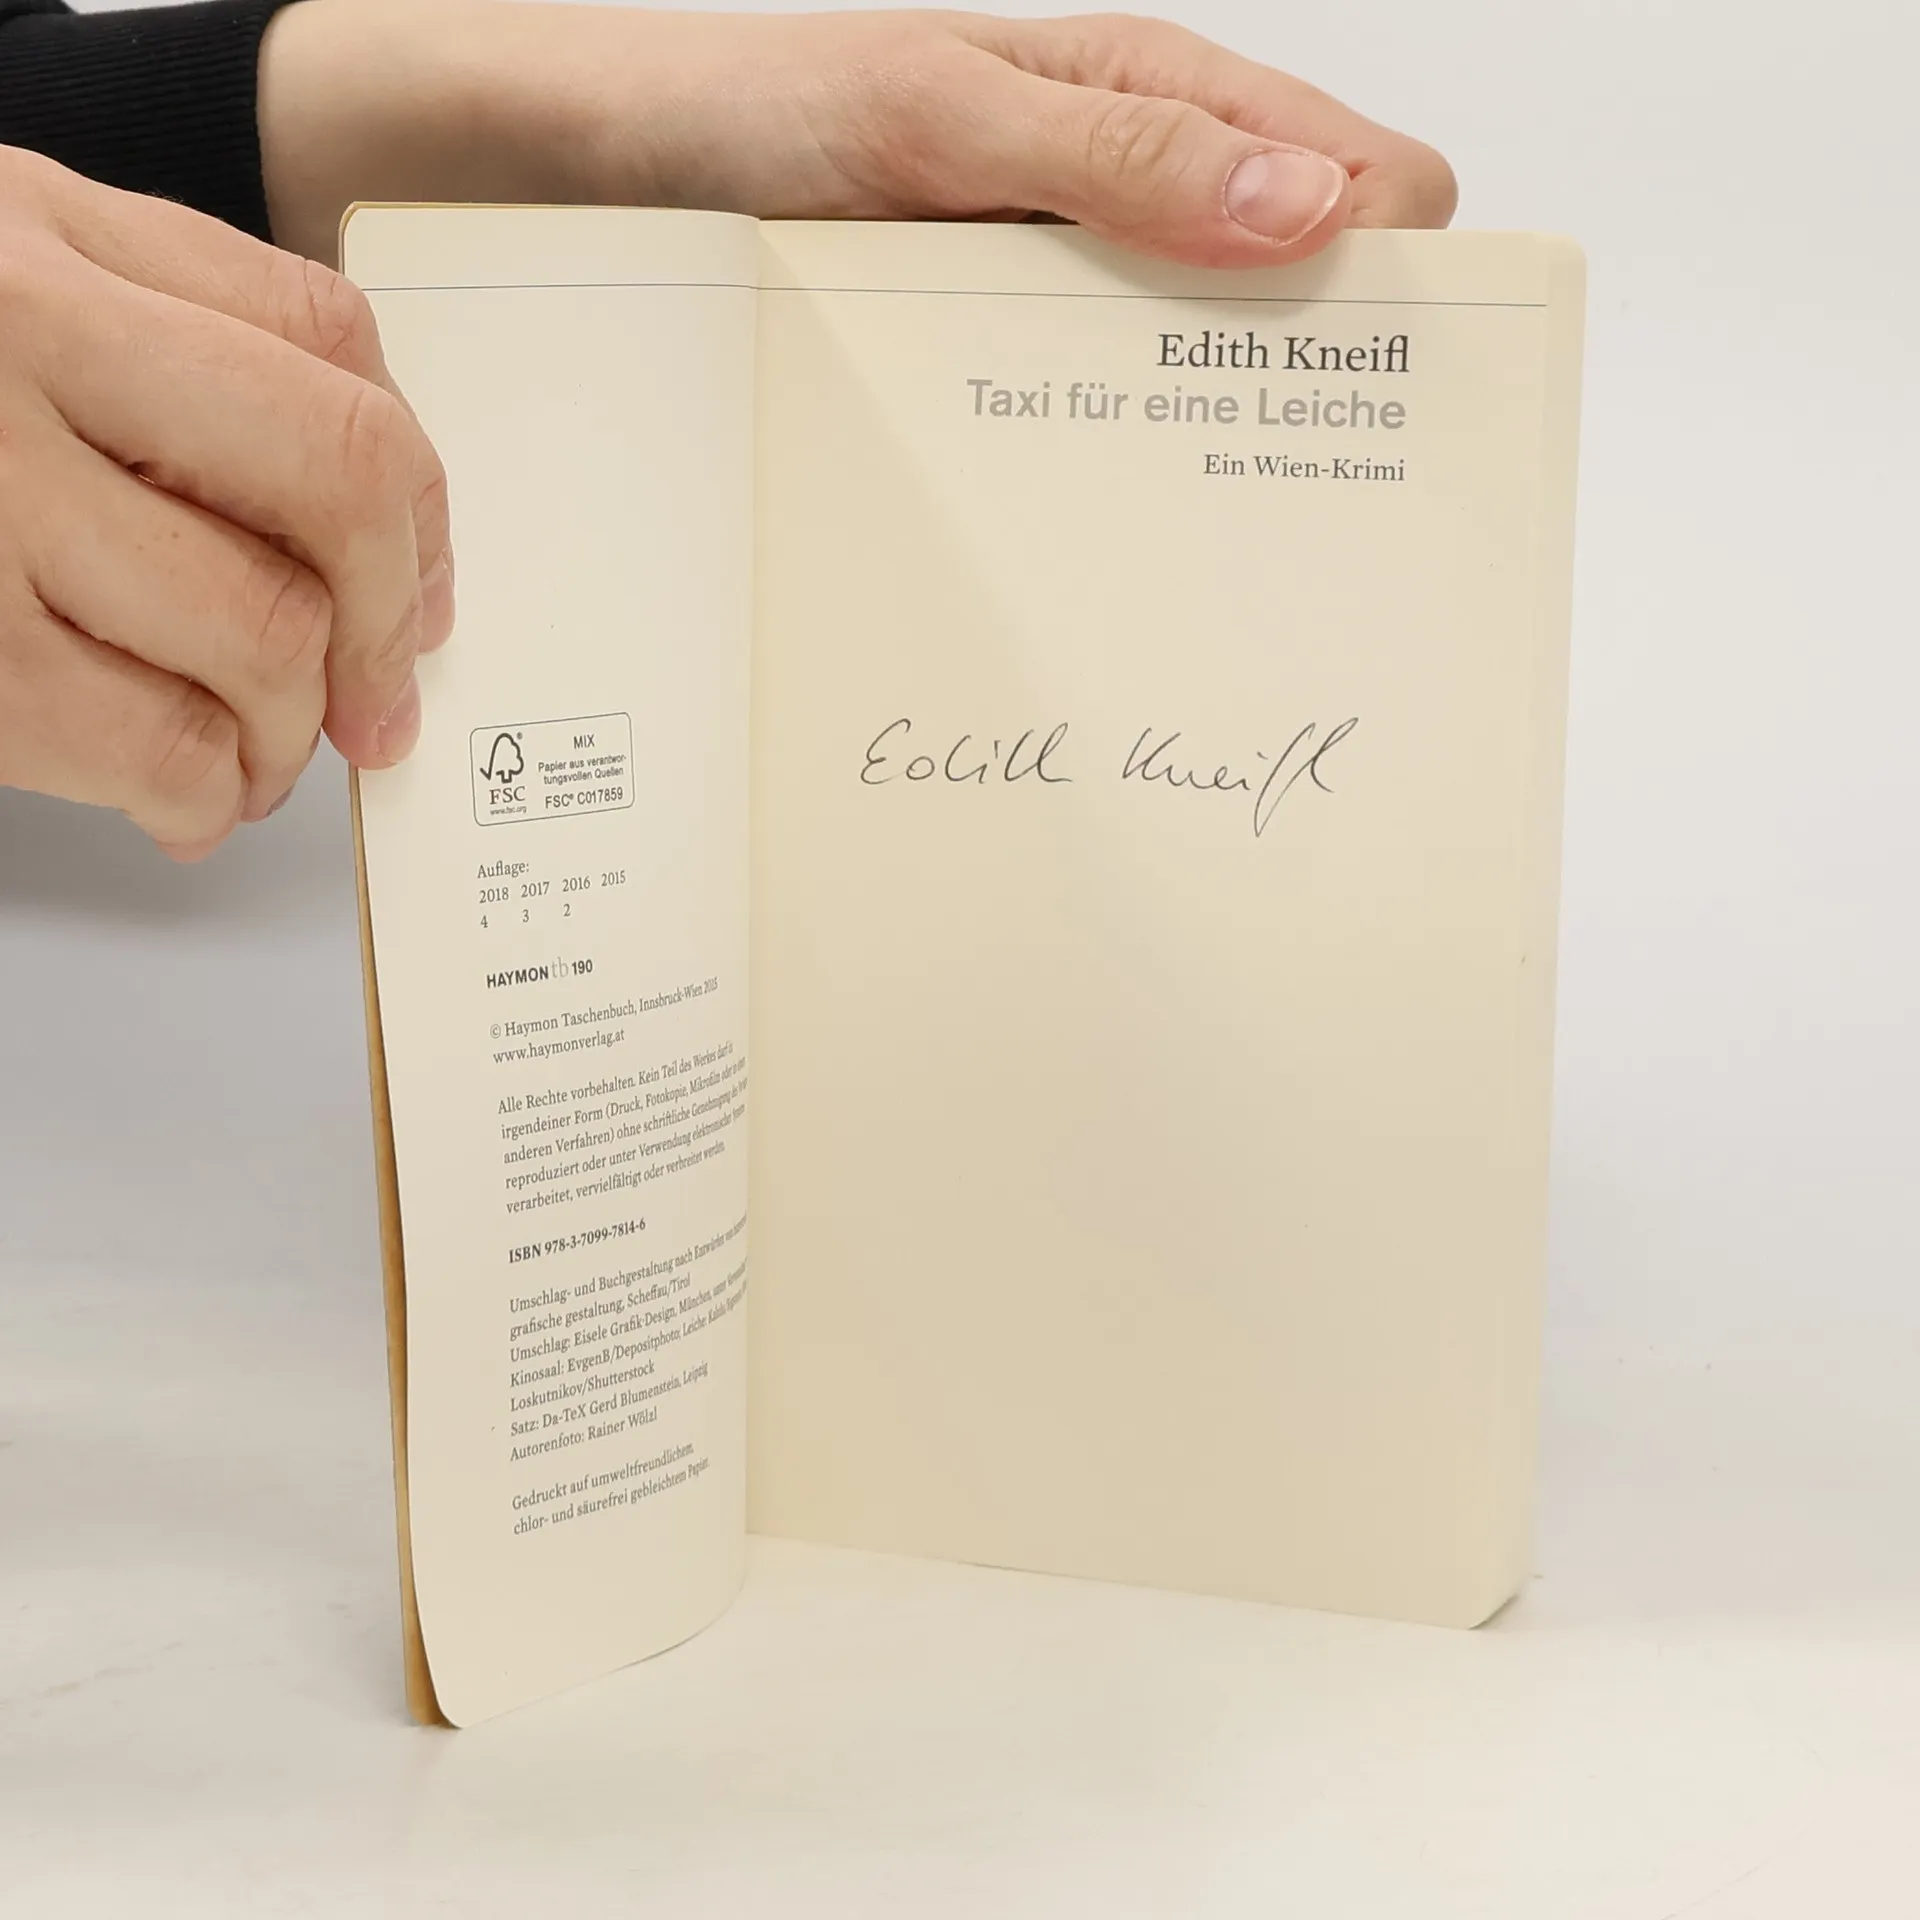 MIX
Papier aus verantwor-
tungsvollen Quellen
FSC
www.fsc.org
FSC® C017859
Auflage:
2018 2017 2016 2015
4 3 2
HAYMON tb 190
© Haymon Taschenbuch, Innsbruck-Wien 2015
www.haymonverlag.at
Alle Rechte vorbehalten. Kein Teil des Werkes darf in
irgendeiner Form (Druck, Fotokopie, Mikrofilm oder in einem
anderen Verfahren) ohne schriftliche Genehmigung des
reproduziert oder unter Verwendung elektronischer Systeme
verarbeitet, vervielfältigt oder verbreitet werden.
ISBN 978-3-7099-7814-6
Umschlag- und Buchgestaltung nach Entwürfen von
grafische gestaltung, Scheffau/Tirol
Umschlag: Eisele Grafik·Design, München, unter
Kinosaal: EvgenB/Depositphoto; Leiche:
Loskutnikov/Shutterstock
Satz: Da-TeX Gerd Blumenstein, Leipzig
Autorenfoto: Rainer Wölzl
Gedruckt auf umweltfreundlichem,
chlor- und säurefrei gebleichtem Papier.
Edith Kneifl
Taxi für eine Leiche
Ein Wien-Krimi
Edith Kneifl